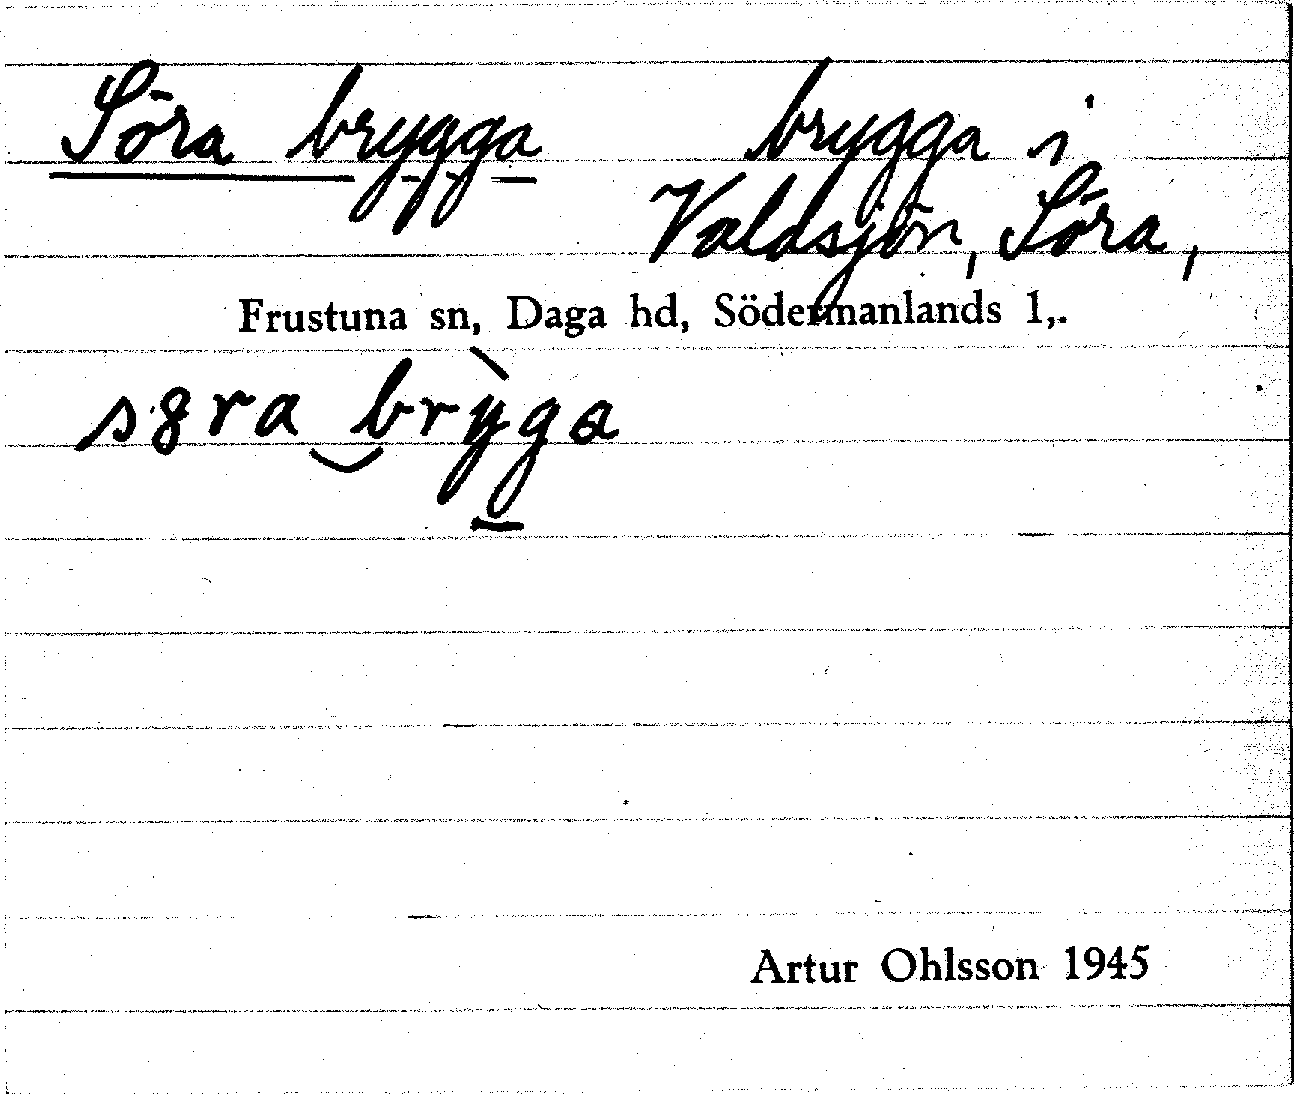 Söra brygga brygga i
Valdsjön, Söra,
Frustuna sn, Daga hd, Södermanlands l,.
s8ra bry̖ga
Artur Ohlsson 1945